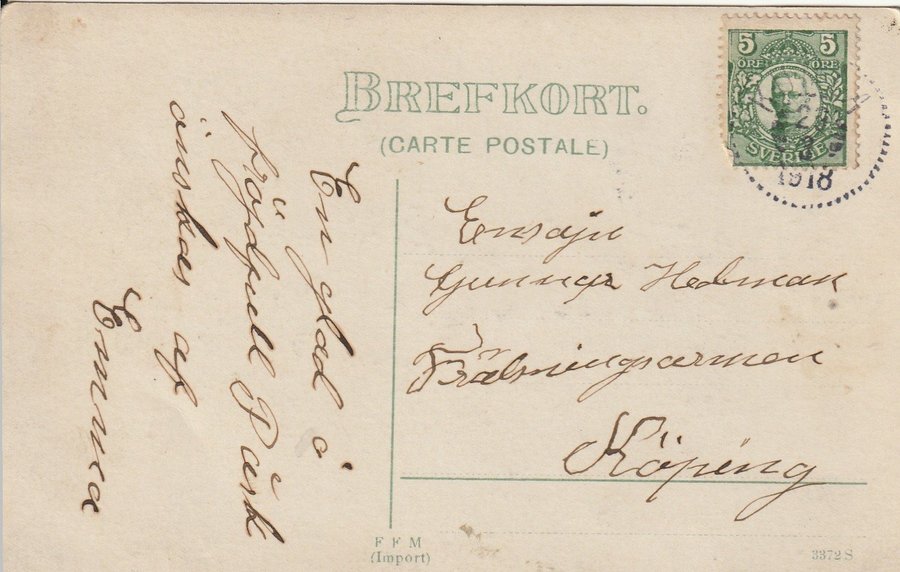 BREFKORT.
(CARTE POSTALE)
5 5
ÖRE ÖRE
SVERIGE
1918
En glad o
fröjdfull Påsk
önskas af
Emma
Ensajn
Gunnar Hedman
Frälsningsarmen
Köping
F F M
(Import)
3372 S